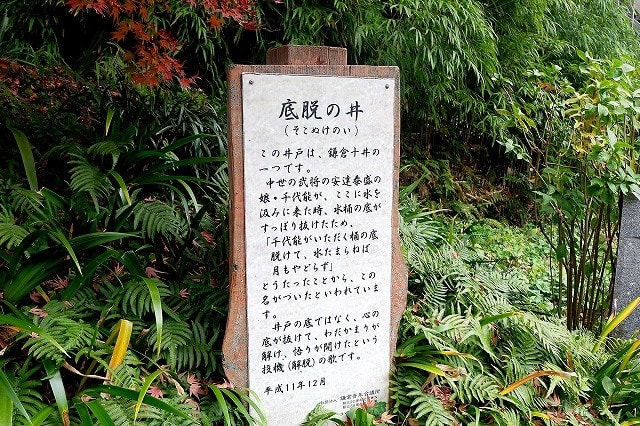 底脱の井
（そこぬけのい）
この井戸は、鎌倉十井の
一つです。
中世の武将の安達泰盛の
娘・千代能が、ここに水を
汲みに来た時、水桶の底が
すっぽり抜けたため、
「千代能がいただく桶の底
脱けて、水たまらねば
月もやどらず」
とうたったことから、この
名がついたといわれていま
す。
井戸の底ではなく、心の
底が抜けて、わだかまりが
解け、悟りが開けたという
投機（解脱）の歌です。
平成11年12月
鎌倉青年会議所